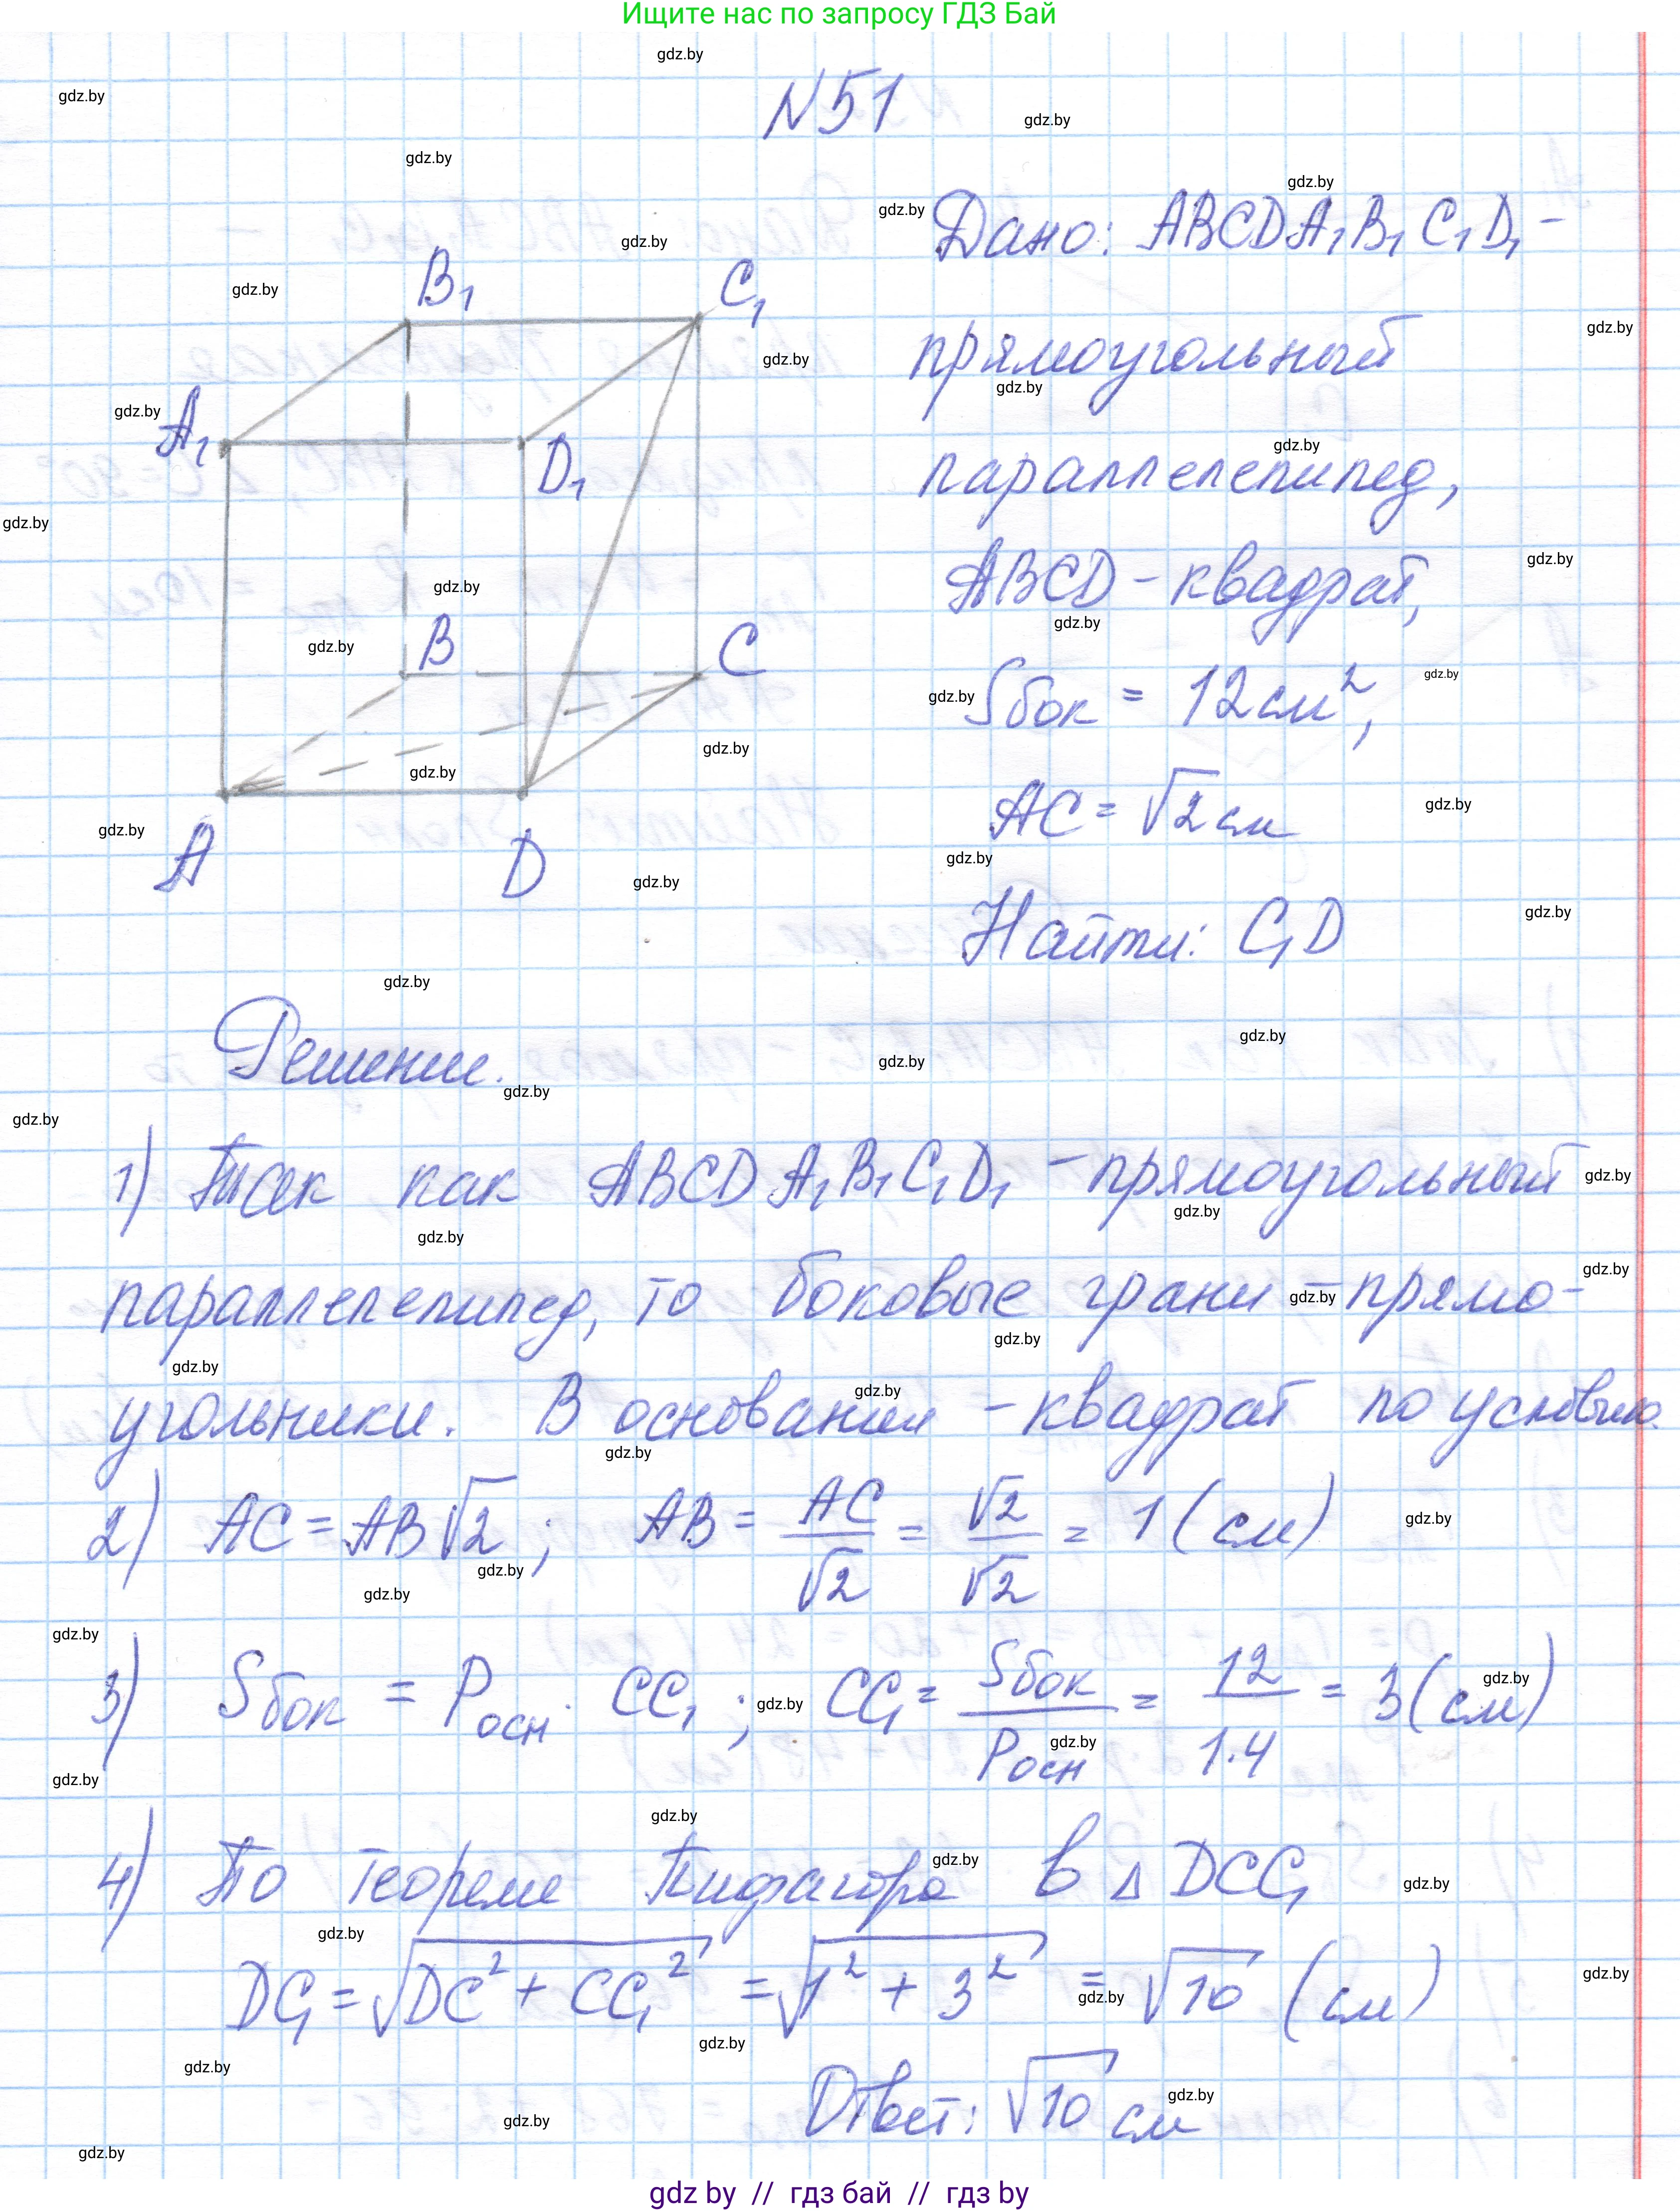 Ищите нас по запросу ГДЗ Бай
N51
Дано: ABCDA₁B₁C₁D₁ –
прямоугольный
параллелепипед,
ABCD – квадрат,
Sбок = 12 см²,
AC = √2 см
Найти: C₁D
B₁
C₁
A₁
D₁
B
C
A
D
Решение.
1) Так как ABCDA₁B₁C₁D₁ – прямоугольный
параллелепипед, то боковые грани – прямо-
угольники. В основании – квадрат по условию.
2) AC = AB√2 ; AB = AC/√2 = √2/√2 = 1 (см)
3) Sбок = Pосн · CC₁ ; CC₁ = Sбок/Pосн = 12/1·4 = 3 (см)
4) По теореме Пифагора в Δ DCC₁
DC₁ = √(DC² + CC₁²) = √(1² + 3²) = √10 (см)
Ответ: √10 см
gdz by // гдз бай // гдз by